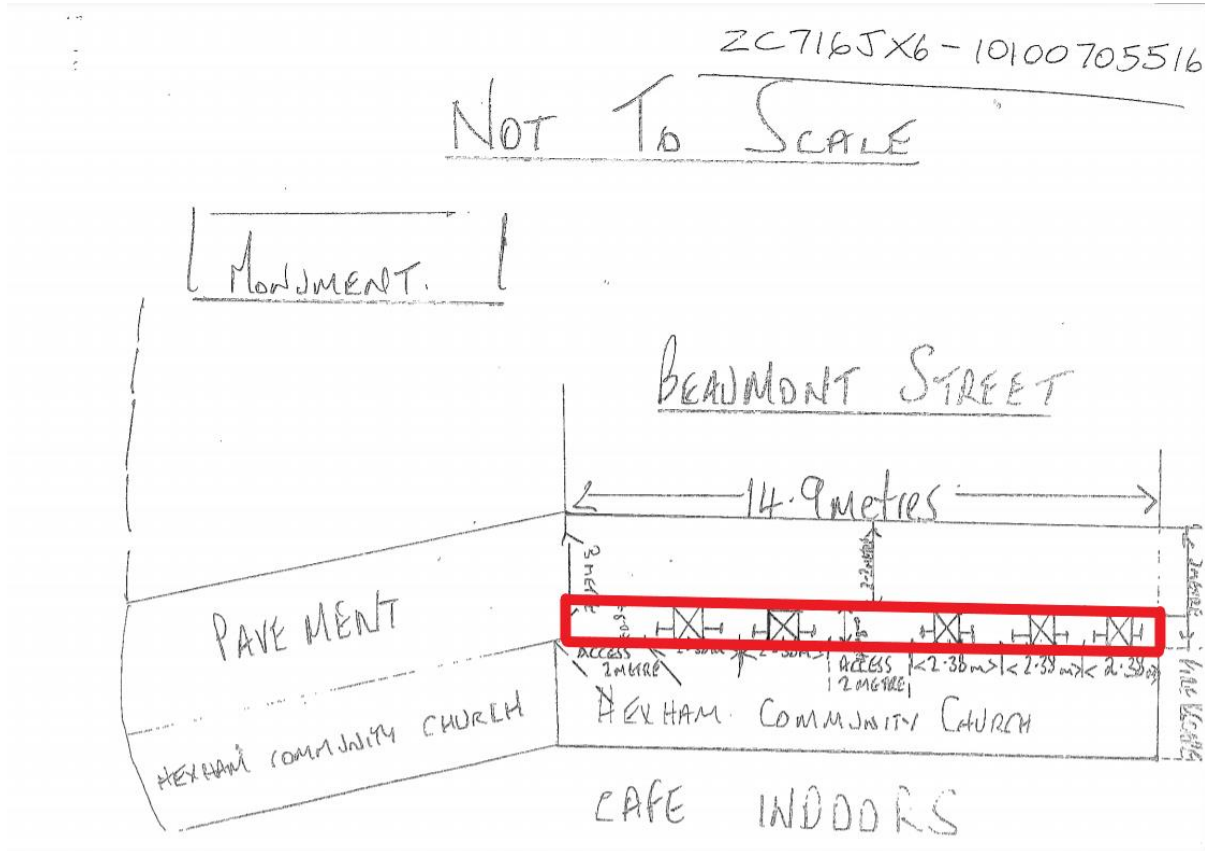 ZC716JX6-10100705516
NOT TO SCALE
MONUMENT.
BEAUMONT STREET
14.9 metres
3 METRE
2.2 METRE
2 METRE
PAVEMENT
ACCESS
2 METRE
2.38m
2.38m
ACCESS
2 METRE
2.38m
2.38m
2.38m
HEXHAM COMMUNITY CHURCH
HEXHAM COMMUNITY CHURCH
CAFE INDOORS